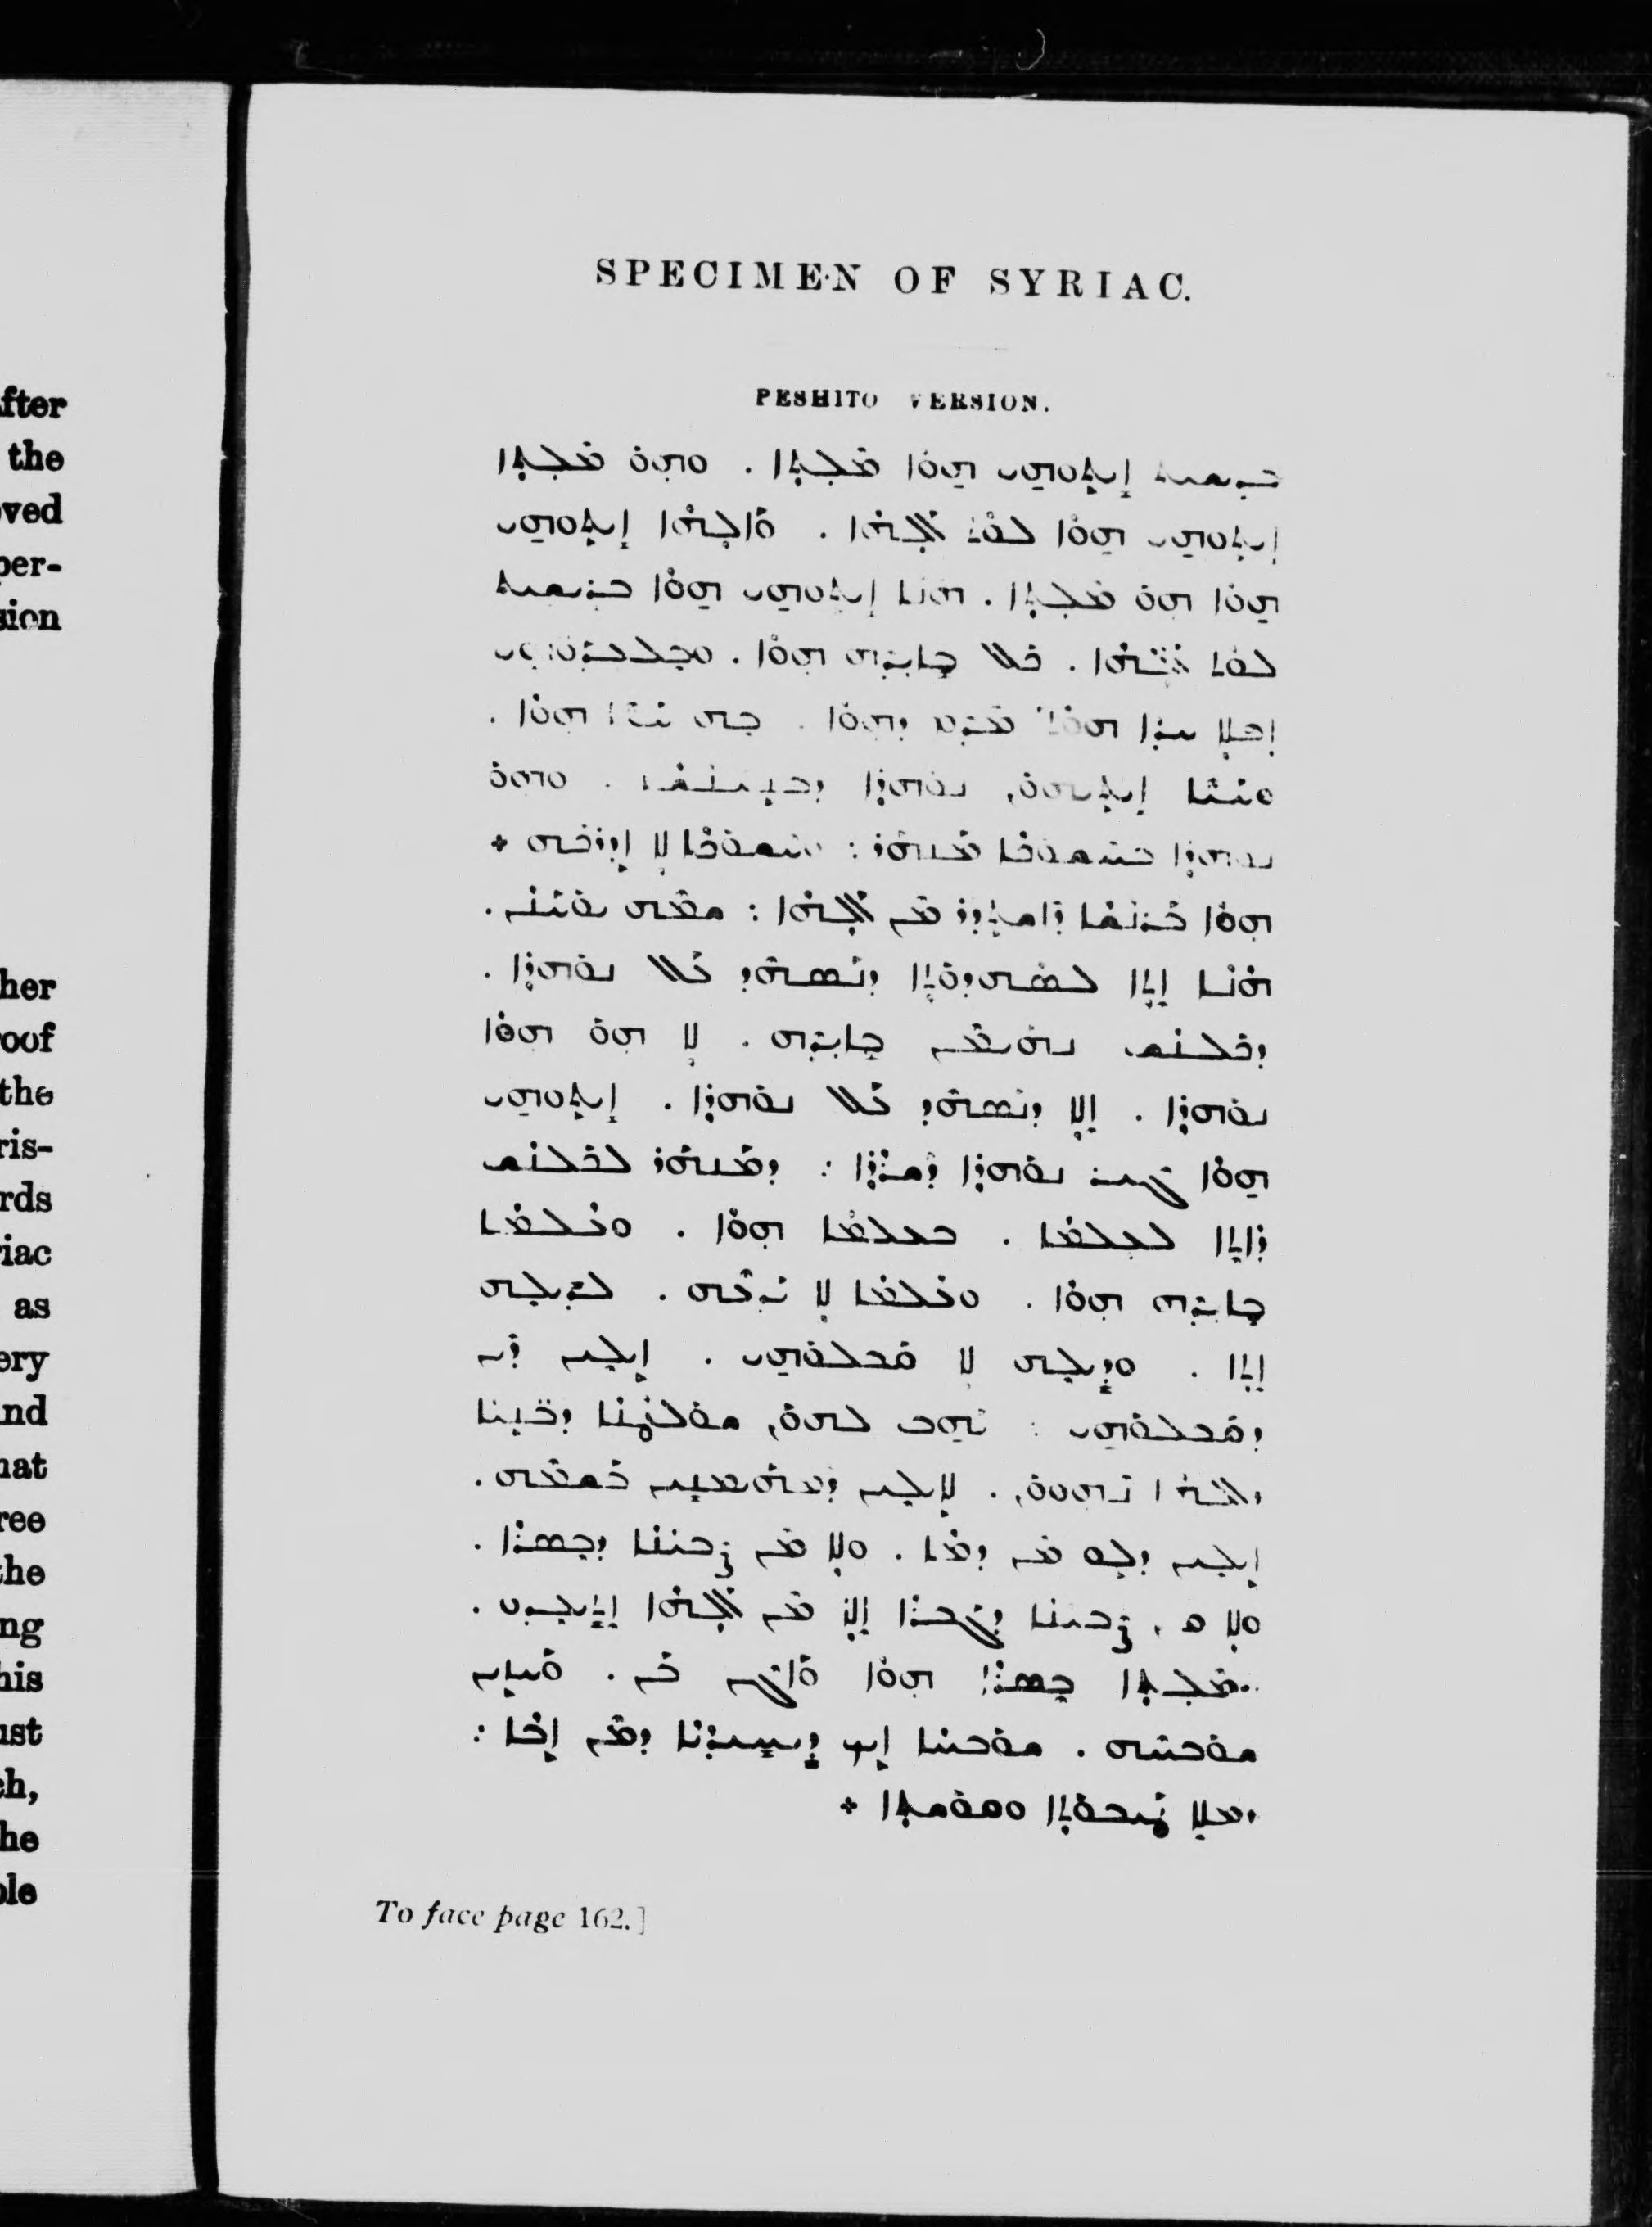 SPECIMEN OF SYRIAC.
PESHITO VERSION.
ܒܪܫܝܬ ܐܝܬܘܗܝ ܗܘܐ ܡܠܬܐ . ܘܗܘ ܡܠܬܐ
ܐܝܬܘܗܝ ܗܘܐ ܠܘܬ ܐܠܗܐ . ܘܐܠܗܐ ܐܝܬܘܗܝ
ܗܘܐ ܗܘ ܡܠܬܐ . ܗܢܐ ܐܝܬܘܗܝ ܗܘܐ ܒܪܫܝܬ
ܠܘܬ ܐܠܗܐ . ܟܠ ܒܐܝܕܗ ܗܘܐ . ܘܒܠܥܕܘܗܝ
ܐܦܠܐ ܚܕܐ ܗܘܬ ܡܕܡ ܕܗܘܐ . ܒܗ ܚܝܐ ܗܘܐ .
ܘܚܝܐ ܐܝܬܝܗܘܢ ܢܘܗܪܐ ܕܒܢܝܢܫܐ . ܘܗܘ
ܢܘܗܪܐ ܒܚܫܘܟܐ ܡܢܗܪ : ܘܚܫܘܟܐ ܠܐ ܐܕܪܟܗ ܀
ܗܘܐ ܒܪܢܫܐ ܕܐܫܬܕܪ ܡܢ ܐܠܗܐ : ܫܡܗ ܝܘܚܢܢ .
ܗܢܐ ܐܬܐ ܠܣܗܕܘܬܐ ܕܢܣܗܕ ܥܠ ܢܘܗܪܐ .
ܕܟܠܢܫ ܢܗܝܡܢ ܒܐܝܕܗ . ܠܐ ܗܘ ܗܘܐ
ܢܘܗܪܐ . ܐܠܐ ܕܢܣܗܕ ܥܠ ܢܘܗܪܐ . ܐܝܬܘܗܝ
ܗܘܐ ܓܝܪ ܢܘܗܪܐ ܕܫܪܪܐ : ܕܡܢܗܪ ܠܟܠܢܫ
ܕܐܬܐ ܠܥܠܡܐ . ܒܥܠܡܐ ܗܘܐ . ܘܥܠܡܐ
ܒܐܝܕܗ ܗܘܐ . ܘܥܠܡܐ ܠܐ ܝܕܥܗ . ܠܕܝܠܗ
ܐܬܐ . ܘܕܝܠܗ ܠܐ ܩܒܠܘܗܝ . ܐܝܠܝܢ ܕܝܢ
ܕܩܒܠܘܗܝ : ܝܗܒ ܠܗܘܢ ܫܘܠܛܢܐ ܕܒܢܝܐ
ܕܐܠܗܐ ܢܗܘܘܢ . ܠܐܝܠܝܢ ܕܡܗܝܡܢܝܢ ܒܫܡܗ .
ܐܝܠܝܢ ܕܠܘ ܡܢ ܕܡܐ . ܘܠܐ ܡܢ ܨܒܝܢܐ ܕܒܣܪܐ .
ܘܠܐ ܡܢ ܨܒܝܢܐ ܕܓܒܪܐ ܐܠܐ ܡܢ ܐܠܗܐ ܐܬܝܠܕܘ .
ܘܡܠܬܐ ܒܣܪܐ ܗܘܐ ܘܐܓܢ ܒܢ . ܘܚܙܝܢ
ܫܘܒܚܗ . ܫܘܒܚܐ ܐܝܟ ܕܝܚܝܕܝܐ ܕܡܢ ܐܒܐ :
ܕܡܠܐ ܛܝܒܘܬܐ ܘܩܘܫܬܐ ܀
To face page 162.]
fter
the
ved
per-
sion
her
roof
the
ris-
rds
riac
as
ery
nd
hat
ree
the
ng
his
ust
ch,
he
ble